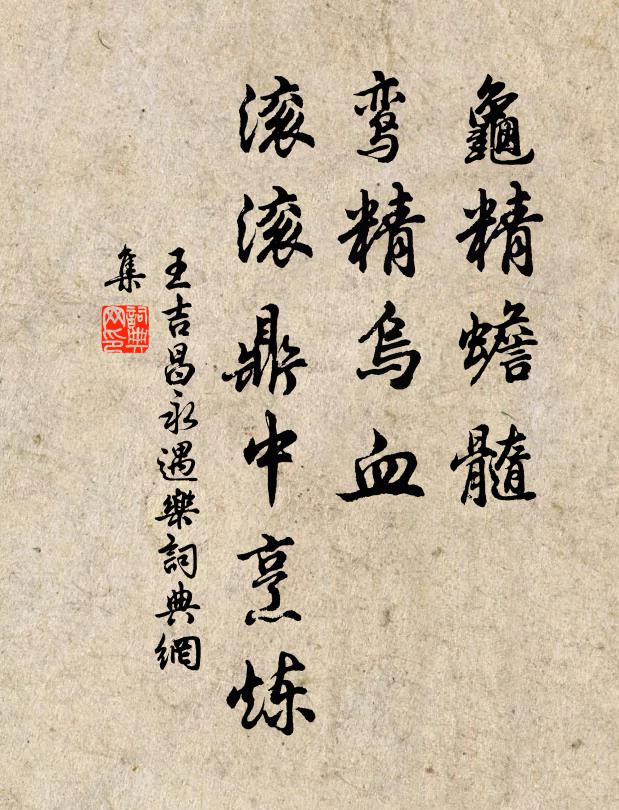 龜精蟾髓
鸾精烏血
滚滚鼎中烹炼
王吉昌永遇樂詞典網
集
詞典
网印